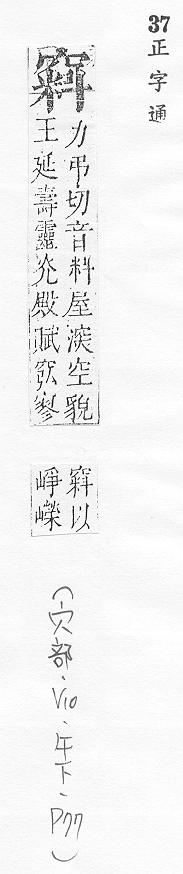 37
正字通
力弔切音料屋深空貌
王延壽靈灮殿賦
以
崢嶸
(穴部、V10、午下、P77)